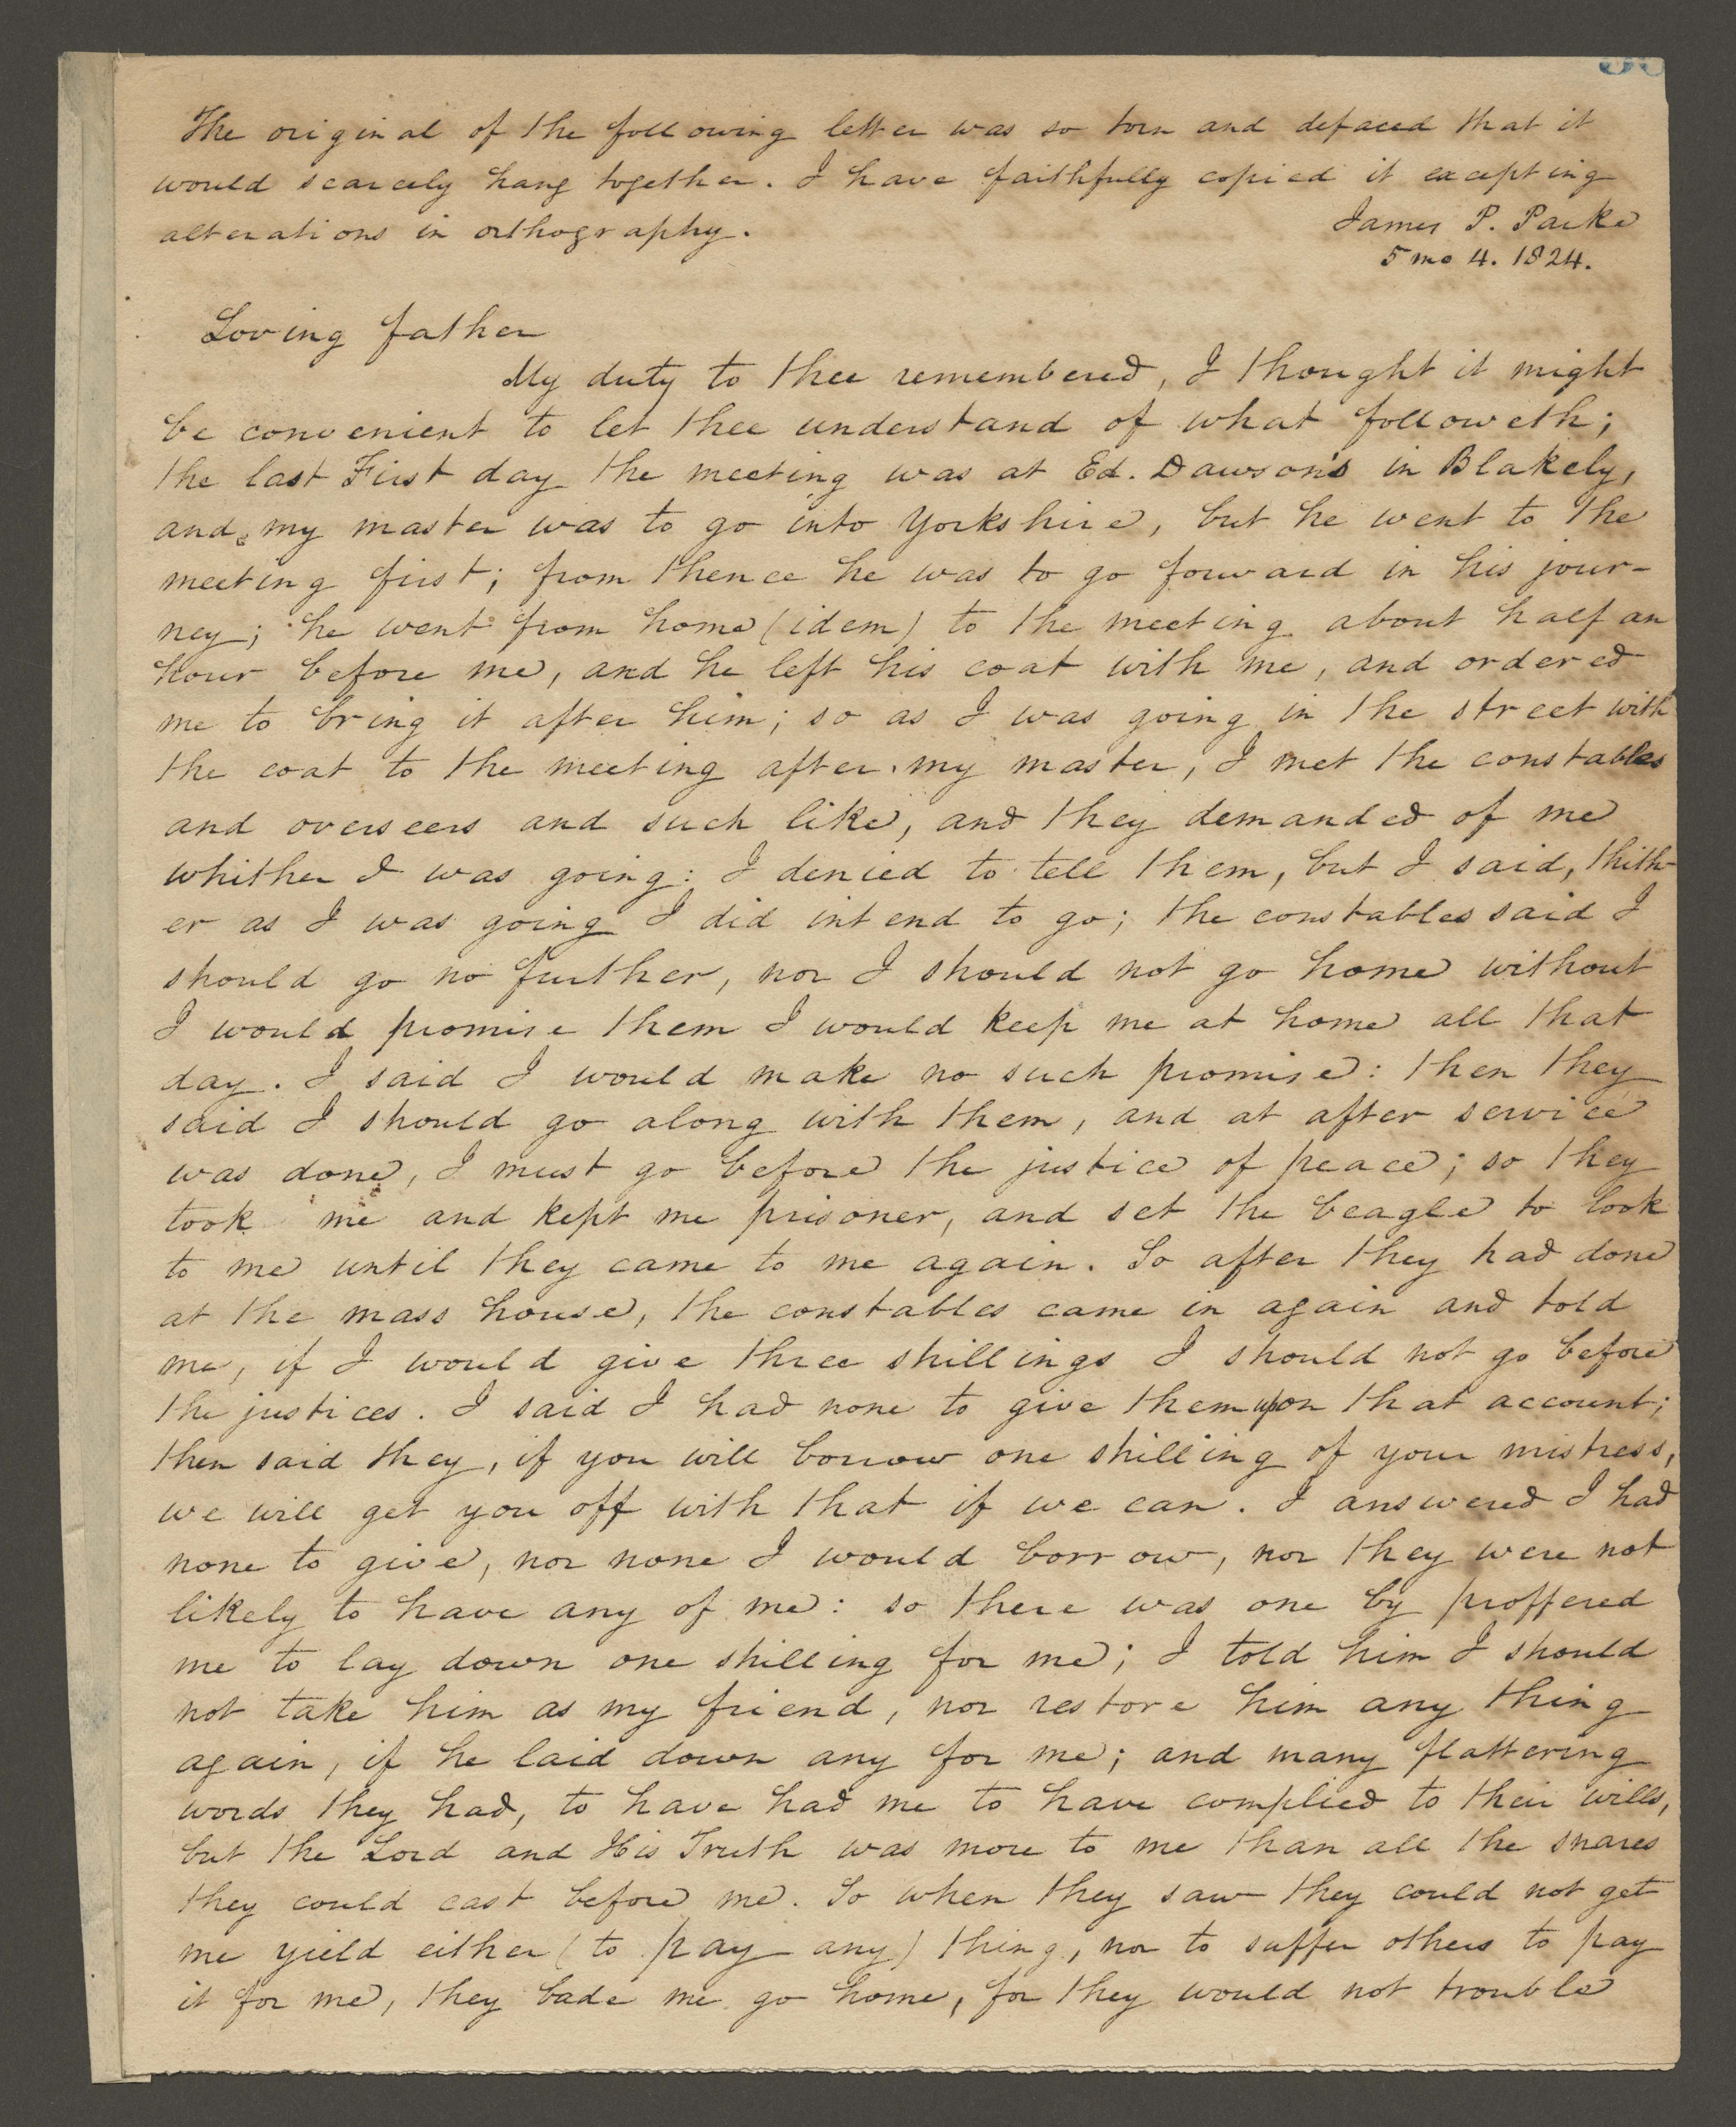 The original of the following letter was so torn and defaced that it
would scarcely hang together. I have faithfully copied it excepting
alterations in orthography.
James P. Parke
5 mo 4. 1824.
Loving father
My duty to thee remembered, I thought it might
be convenient to let thee understand of what followeth;
the last First day the meeting was at Ed. Dawson's in Blakely,
and my master was to go into Yorkshire, but he went to the
meeting first; from thence he was to go forward in his jour-
ney; he went from home (idem) to the meeting about half an
hour before me, and he left his coat with me, and ordered
me to bring it after him; so as I was going in the street with
the coat to the meeting after my master, I met the constables
and overseers and such like, and they demanded of me
whither I was going: I denied to tell them, but I said, thith-
er as I was going I did intend to go; the constables said I
should go no further, nor I should not go home without
I would promise them I would keep me at home all that
day. I said I would make no such promise: then they
said I should go along with them, and at after service
was done, I must go before the justice of peace; so they
took me and kept me prisoner, and set the beagle to look
to me until they came to me again. So after they had done
at the mass house, the constables came in again and told
me, if I would give three shillings I should not go before
the justices. I said I had none to give them upon that account;
then said they, if you will borrow one shilling of your mistress,
we will get you off with that if we can. I answered I had
none to give, nor none I would borrow, nor they were not
likely to have any of me: so there was one by proffered
me to lay down one shilling for me; I told him I should
not take him as my friend, nor restore him any thing
again, if he laid down any for me; and many flattering
words they had, to have had me to have complied to their wills,
but the Lord and His Truth was more to me than all the snares
they could cast before me. So when they saw they could not get
me yield either (to pay any) thing, nor to suffer others to pay
it for me, they bade me go home, for they would not trouble